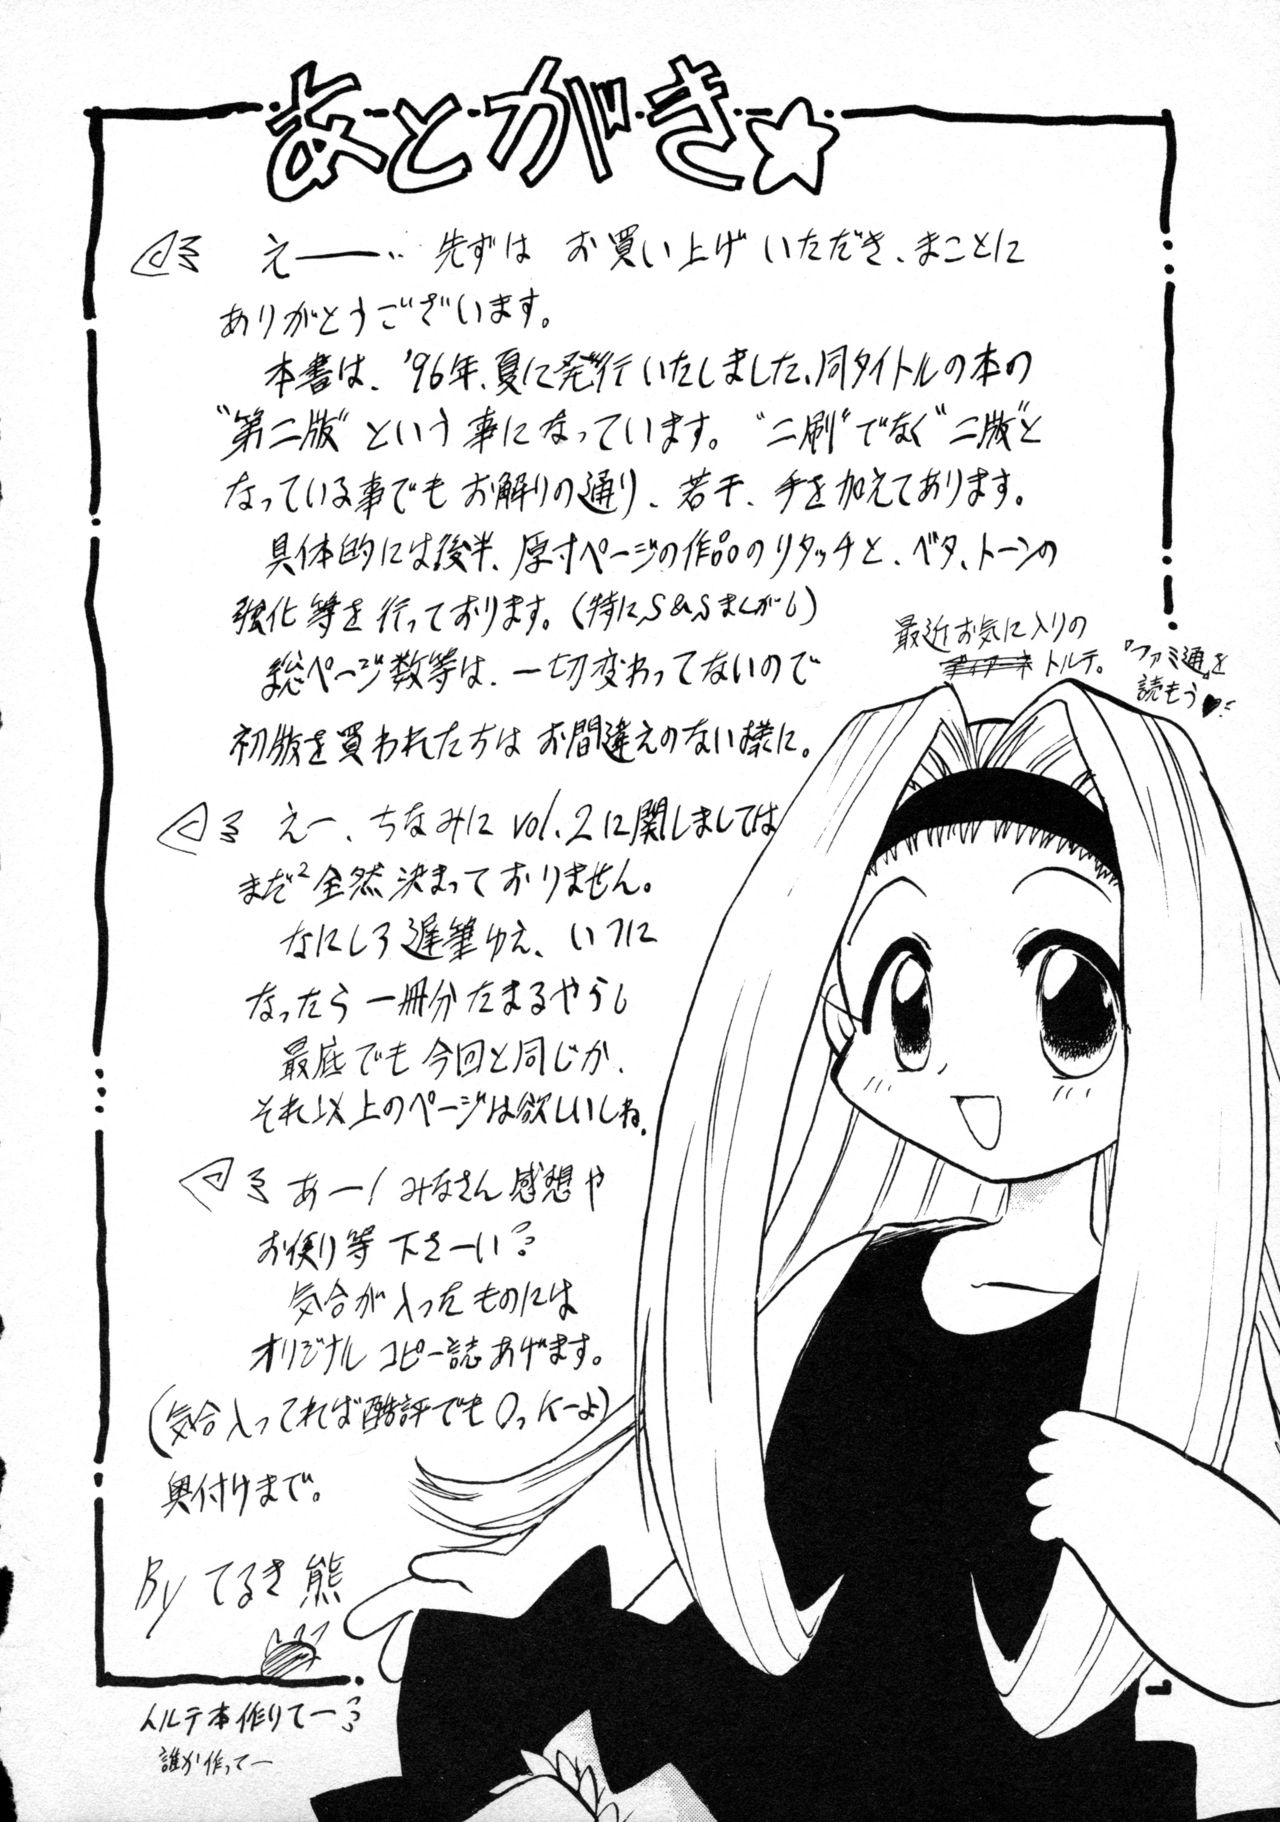 あとがき☆
えー… 先ずは お買い上げ いただき、まことに
ありがとうございます。
本書は、'96年、夏に発行いたしました、同タイトルの本の
"第二版" という事になっています。"二刷"でなく"二版"と
なっている事でも お解りの通り、若干、手を加えてあります。
具体的には後半、原寸ページの作品のリタッチと、ベタ、トーンの
強化等を行っております。(特にS&Sまくがし)
総ページ数等は、一切変わってないので
初版を買われた方は お間違えのない様に。
最近お気に入りの
トルテ。
『ファミ通』を
読もう♥
えー、ちなみに vol.2に関しましては
まだ²全然決まっておりません。
なにしろ遅筆ゆえ、いつに
なったら 一冊分たまるやらし
最底でも今回と同じか、
それ以上のページは欲しいしね。
あー! みなさん感想や
お便り等 下さーい?
気合が入ったものには
オリジナル コピー誌あげます。
(気合入ってれば酷評でもOっKーよ)
奥付けまで。
By てるき熊
トルテ本作りてー?
誰か作ってー